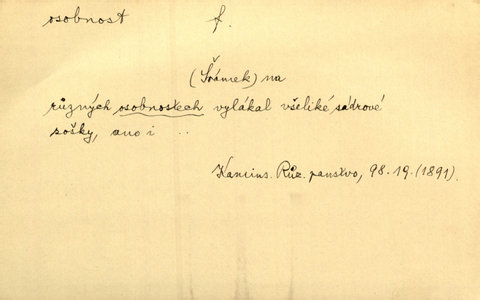 osobnost f.
(Šrámek) na
různých osobnostech vylákal všeliké sádrové
sošky, ano i ..
Kamins. Růz. panstvo, 98.19.(1891).